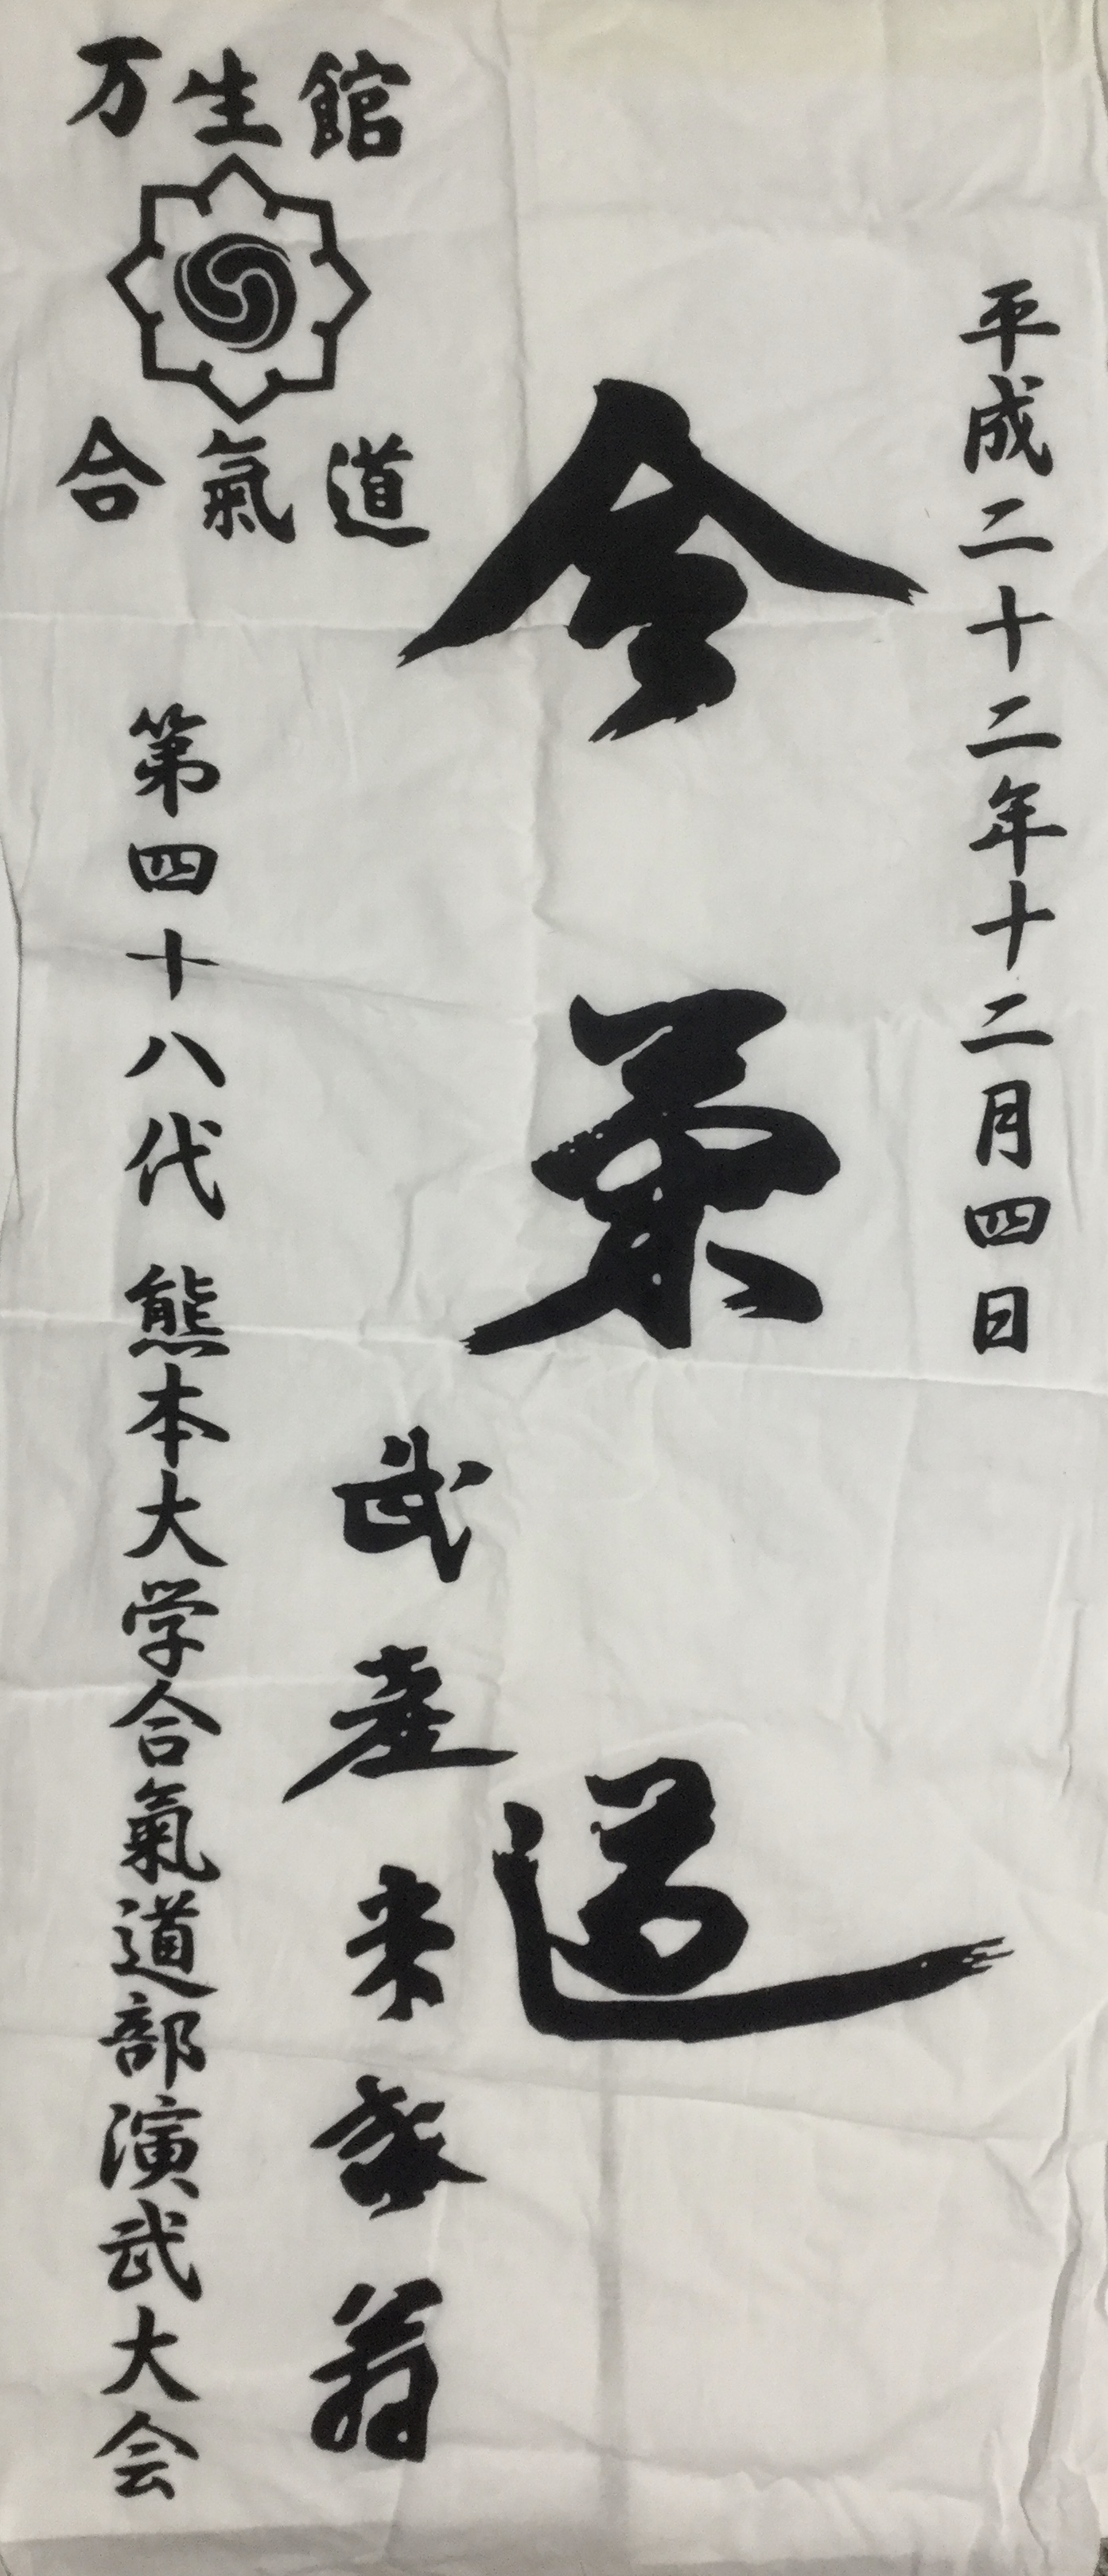 平成二十二年十二月四日
合氣道
武産
翁
万生館
合氣道
第四十八代 熊本大学合氣道部演武大会